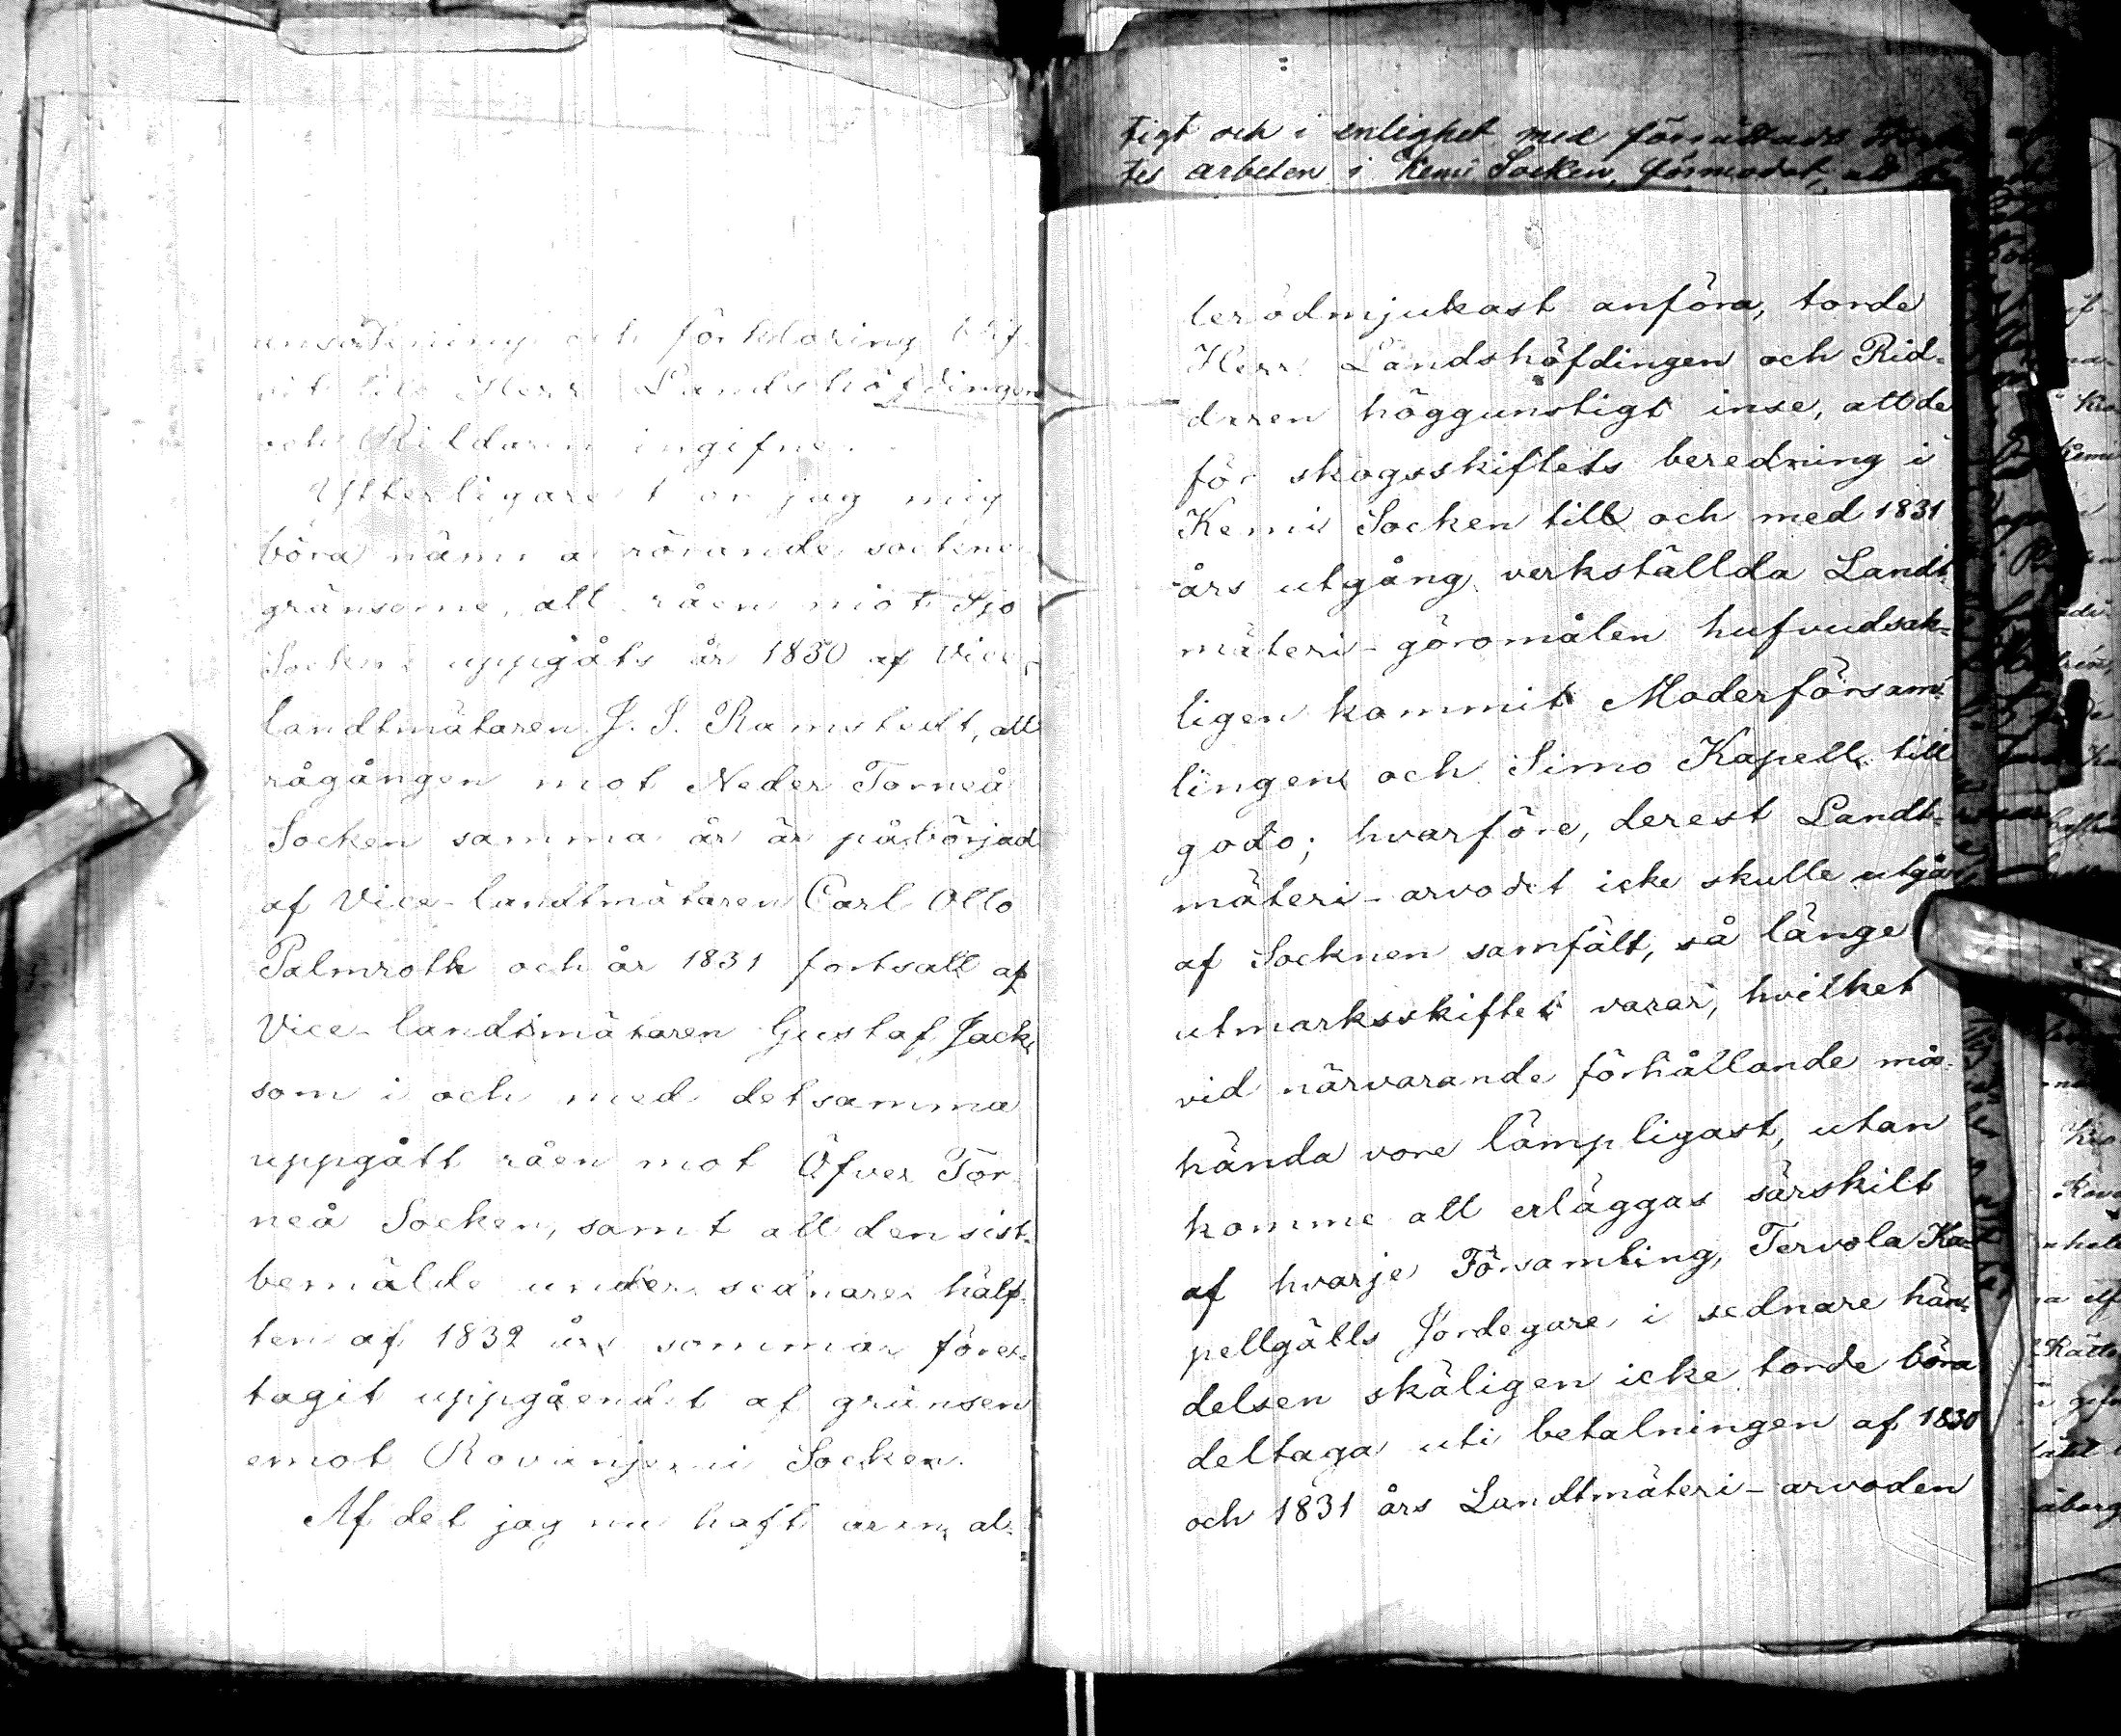 ansökning och förklaring blif-
vit till Herr Landshöfdingen
och Riddaren ingifne.
Ytterligare tör jag mig
böra nämna rörande sockne-
gränserne, att råen mot Ijo
Socken uppgåts år 1830 af Vice-
landtmätaren J. I. Ramstedt, att
rågången mot Neder Torneå
Socken samma år är påbörjad
af Vice-landtmätaren Carl Otto
Palmroth och år 1831 fortsatt af
Vice-landtmätaren Gustaf Jack,
som i och med detsamma
uppgått råen mot Öfver Tor-
neå Socken, samt att den sist-
bemälde under sednare hälf-
ten af 1832 års sommar före-
tagit uppgåendet af gränsen
emot Rovanjemi Socken.
Af det jag nu haft äran al-
tigt och i enlighet med förrättade
tes arbeten i Kemi Socken, förmodat, att
lerödmjukast anföra, torde
Herr Landshöfdingen och Rid-
daren höggunstigt inse, att de
för skogsskiftets beredning i
Kemi Socken till och med 1831
års utgång verkställda Landt-
mäteri-göromålen hufvudsak-
ligen kommit Moderförsam-
lingen och Simo Kapell till
godo; hvarföre, derest Landt-
mäteri-arvodet icke skulle utgå
af Socknen samfält, så länge
utmarksskiftet varar, hvilket
vid närvarande förhållande må-
hända vore lämpligast, utan
komme att erläggas särskilt
af hvarje Församling, Tervola Ka-
pellgälls Jordegare i sednare hän-
delsen skäligen icke torde böra
deltaga uti betalningen af 1830
och 1831 års Landtmäteri-arvoden